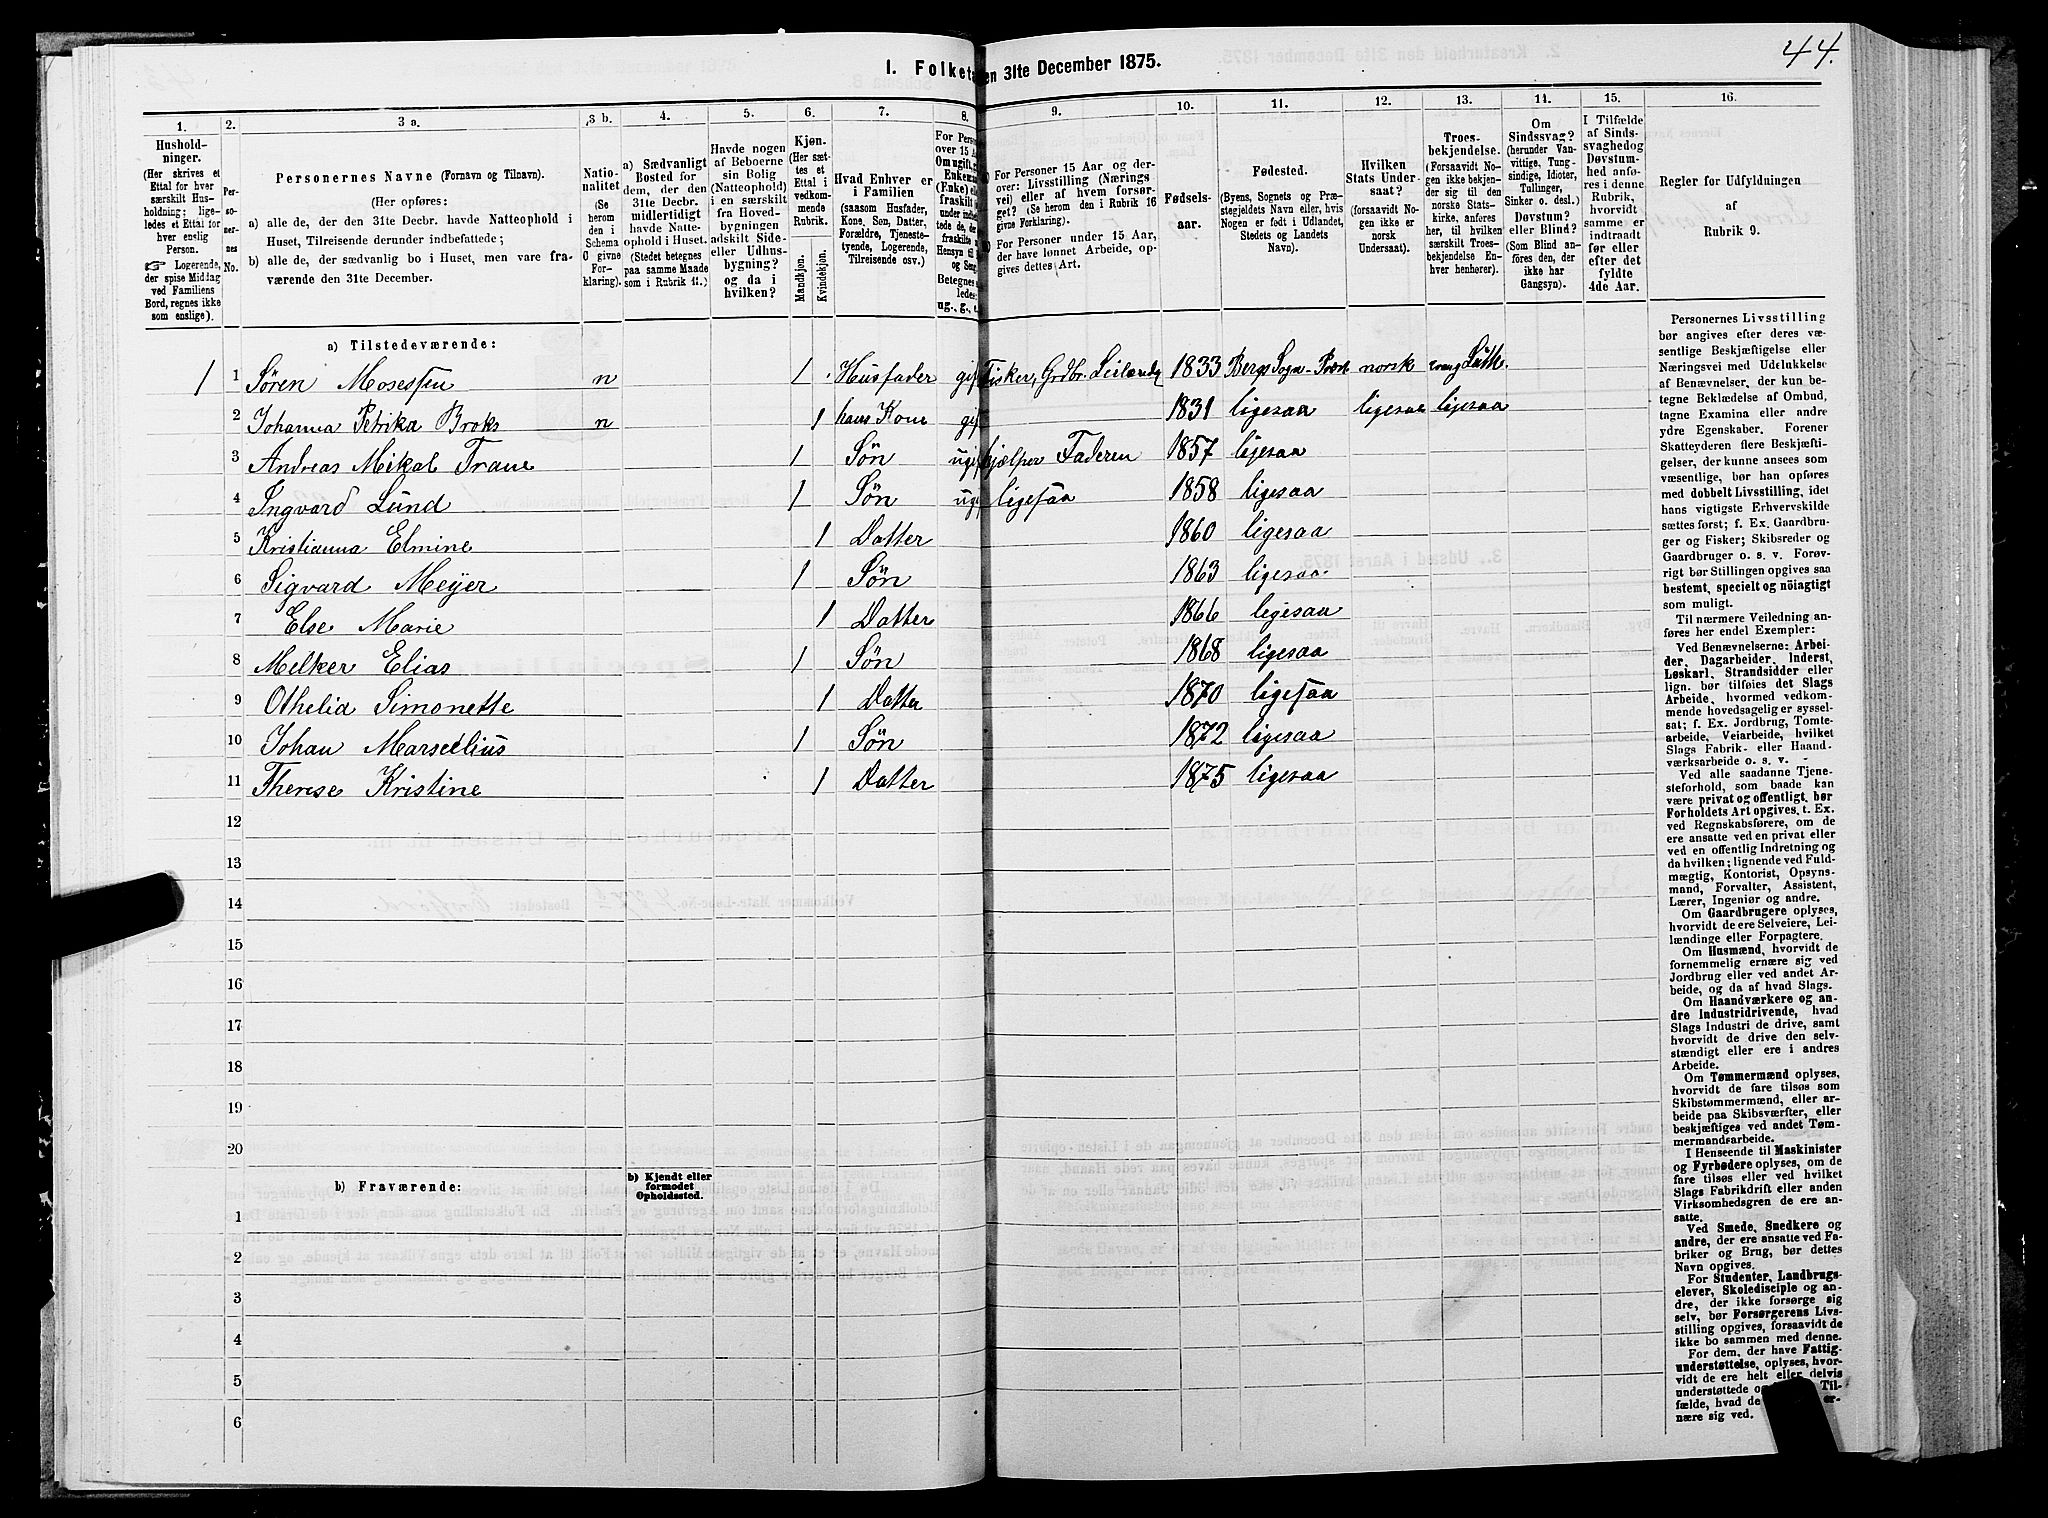 44.
I. Folketa en 31te December 1875.
1. 2. 3 a. 3 b. 4. 5. 6. 7. 8. 9. 10. 11. 12. 13. 14. 15. 16.
Hushold-
ninger.
(Her skrives et
Ettal for hver
særskilt Hus-
holdning; lige-
ledes et Ettal for
hver enslig
Person.
☞ Logerende,
der spise Middag
ved Familiens
Bord, regnes ikke
som enslige).
Per-
so-
ner-
nes
No.
Personernes Navne (Fornavn og Tilnavn).
(Her opføres:
a) alle de, der den 31te Decbr. havde Natteophold i
Huset, Tilreisende derunder indbefattede;
b) alle de, der sædvanlig bo i Huset, men vare fra-
værende den 31te December.
Natio-
nalitet
(Se
herom
den i
Schema
C givne
For-
klaring).
a) Sædvanligt
Bosted for
dem, der den
31te Decbr.
midlertidigt
havde Natte-
ophold i Huset.
(Stedet betegnes
paa samme Maade
som i Rubrik 11.)
Havde nogen
af Beboerne
sin Bolig
(Natteophold)
i en særskilt
fra Hoved-
bygningen
adskilt Side-
eller Udhus-
bygning?
og da i
hvilken?
Kjøn.
(Her sæt-
tes et
Ettal i
vedkom-
mende
Rubrik.
Mandkjøn.
Kvindekjøn.
Hvad Enhver er
i Familien
(saasom Husfader,
Kone, Søn, Datter,
Forældre, Tjeneste-
tyende, Logerende,
Tilreisende osv.)
For Pers
over 15 A
Om ugift, g
Enkem
(Enke) ell
fraskilt
under indt
tede de,
fraskilte
Hensyn til
og Sen
Betegnes
ledes:
ug., g., e.
For Personer 15 Aar og der-
over: Livsstilling (Nærings
vei) eller af hvem forsør-
get? (Se herom den i Rubrik 16
givne Forklaring).
For Personer under 15 Aar,
der have lønnet Arbeide, op-
gives dettes Art.
Fødsels-
aar.
Fødested.
(Byens, Sognets og Præ-
stegjeldets Navn eller, hvis
Nogen er født i Udlandet,
Stedets og Landets
Navn).
Hvilken
Stats Under-
saat?
(forsaavidt No-
gen ikke er
norsk
Undersaat).
Troes-
bekjendelse.
(Forsaavidt No-
gen ikke bekjen-
der sig til den
norske Stats-
kirke, anføres
her, til hvilken
særskilt Troes-
bekjendelse En-
hver henhører).
Om
Sindssvag?
(herunder Van-
vittige, Tung-
sindige, Idioter,
Tullinger,
Sinker o. desl.)
Døvstum?
eller Blind?
(Som Blind an-
føres den, der
ikke har
Gangsyn).
I Tilfælde
af Sinds-
svaghed og
Døvstum-
hed anfø-
res i denne
Rubrik,
hvorvidt
samme er
indtraadt
før eller
efter det
fyldte
4de Aar.
Regler for Udfyldningen
af
Rubrik 9.
a) Tilstedeværende:
1 1 Søren Mosessen n 1 Husfader gif Fisker, Grdbr. Leilændg 1833 Bergs Sogn - Præst norsk evang Luth.
2 Johanna Petrika Broks n 1 hans Kone gif 1831 ligesaa ligesaa ligesaa
3 Andreas Mikal Trane 1 Søn ugif hjelper Faderen 1857 ligesaa
4 Ingvard Lund 1 Søn ugif ligesaa 1858 ligesaa
5 Kristianna Elmine 1 Datter 1860 ligesaa
6 Sigvard Meyer 1 Søn 1863 ligesaa
7 Else Marie 1 Datter 1866 ligesaa
8 Melker Elias 1 Søn 1868 ligesaa
9 Othelia Simonette 1 Datter 1870 ligesaa
10 Johan Marselius 1 Søn 1872 ligesaa
11 Therese Kristine 1 Datter 1875 ligesaa
12
13
14
15
16
17
18
19
20
b) Fraværende:
b) Kjendt eller
formodet
Opholdssted.
1
2
3
4
5
6
Personernes Livsstilling
bør angives efter deres væ-
sentlige Beskjæftigelse eller
Næringsvei med Udelukkelse
af Benævnelser, der kun be-
tegne Beklædelse af Ombud,
tagne Examina eller andre
ydre Egenskaber. Forener
Skatteyderen flere Beskjæfti-
gelser, der kunne ansees som
væsentlige, bør han opføres
med dobbelt Livsstilling, idet
hans vigtigste Erhvervskilde
sættes først; f. Ex. Gaardbru-
ger og Fisker; Skibsreder og
Gaardbruger o. s. v. Forøv-
rigt bør Stillingen opgives saa
bestemt, specielt og nøiagtigt
som muligt.
Til nærmere Veiledning an-
føres her endel Exempler:
Ved Benævnelserne: Arbei-
der, Dagarbeider, Inderst,
Løskarl, Strandsidder eller
lign. bør tilføies det Slags
Arbeide, hvormed vedkom-
mende hovedsagelig er syssel-
sat; f. Ex. Jordbrug, Tomte-
arbeide, Veiarbeide, hvilket
Slags Fabrik- eller Haand-
værksarbeide o. s. v.
Ved alle saadanne Tjene-
steforhold, som baade kan
være privat og offentligt, bør
Forholdets Art opgives, t. Ex.
ved Regnskabsførere, om de
ere ansatte ved en privat eller
ved en offentlig Indretning og
da hvilken; lignende ved Fuld-
mægtig, Kontorist, Opsyns-
mand, Forvalter, Assistent,
Lærer, Ingeniør og andre.
Om Gaardbrugere oplyses,
hvorvidt de ere Selveiere, Lei-
lændinge eller Forpagtere.
Om Husmænd, hvorvidt de
fornemmelig ernære sig ved
Jordbrug eller ved andet Ar-
beide, og da af hvad Slags.
Om Haandværkere og an-
dre Industridrivende, hvad
Slags Industri de drive, samt
hvorvidt de drive den selv-
stændigt eller ere i andres
Arbeide.
Om Tømmermænd oplyses,
hvorvidt de fare tilsøs som
Skibstømmermænd, eller ar-
beide paa Skibsværfter, eller
beskjæftiges ved andet Tøm-
mermandsarbeide.
I Henseende til Maskinister
og Fyrbødere oplyses, om de
fare tilsøs eller ved hvilket
Slags Fabrikdrift eller anden
Virksomhedsgren de ere an-
satte.
Ved Smede, Snedkere og
andre, der ere ansatte ved Fa-
briker og Brug, bør dettes
Navn opgives.
For Studenter, Landbrugs-
elever, Skoledisciple og an-
dre, der ikke forsørge sig
selv, bør Forsørgerens Livs-
stilling opgives, forsaavidt de
ikke bo sammen med denne.
For dem, der have Fattig-
understøttelse, oplyses, hvor-
vidt de ere helt eller delvis
understøttede og Til-
fælde, hvad de er-
nære sig ved.